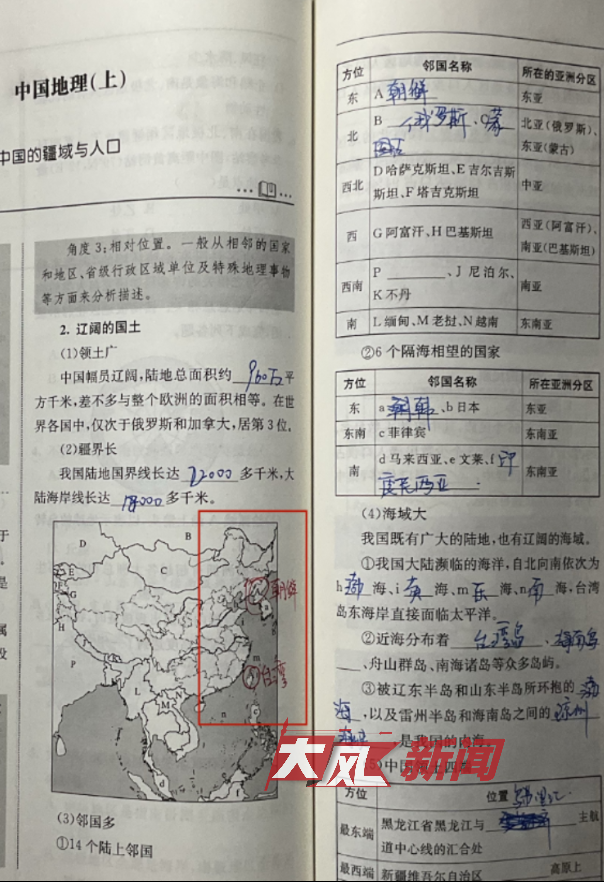 中国地理(上)
中国的疆域与人口
角度3:相对位置。一般从相邻的国家
和地区、省级行政区域单位及特殊地理事物
等方面来分析描述。
2. 辽阔的国土
(1)领土广
中国幅员辽阔,陆地总面积约 960万 平
方千米,差不多与整个欧洲的面积相等。在世
界各国中,仅次于俄罗斯和加拿大,居第3位。
(2)疆界长
我国陆地国界线长达 22000 多千米,大
陆海岸线长达 18000 多千米。
D B
C
E
G
H
P
L M N
m
n
①朝鲜
②台湾
(3)邻国多
①14个陆上邻国
方位 邻国名称 所在的亚洲分区
东 A朝鲜 东亚
北 B 俄罗斯、C蒙 北亚(俄罗斯)、
东亚(蒙古)
西北 D哈萨克斯坦、E吉尔吉斯
斯坦、F塔吉克斯坦 中亚
西 G阿富汗、H巴基斯坦 西亚(阿富汗)、
南亚(巴基斯坦)
西南 P ______、J尼泊尔、
K不丹 南亚
南 L缅甸、M老挝、N越南 东南亚
②6个隔海相望的国家
方位 邻国名称 所在亚洲分区
东 a 韩 、b日本 东亚
东南 c菲律宾 东南亚
南 d马来西亚、e文莱、f印
度尼西亚 东南亚
(4)海域大
我国既有广大的陆地,也有辽阔的海域。
①我国大陆濒临的海洋,自北向南依次为
h渤海、i黄海、m东海、n南海,台湾
岛东海岸直接面临太平洋。
②近海分布着 台湾岛 、海南岛
、舟山群岛、南海诸岛等众多岛屿。
③被辽东半岛和山东半岛所环抱的 渤
海 ,以及雷州半岛和海南岛之间的 琼州
海峡 是我国的内海。
(5)中国领土四
大风新闻
方位 位置
最东端 黑龙江省黑龙江与 主航
道中心线的汇合处
最西端 新疆维吾尔自治区 高原上